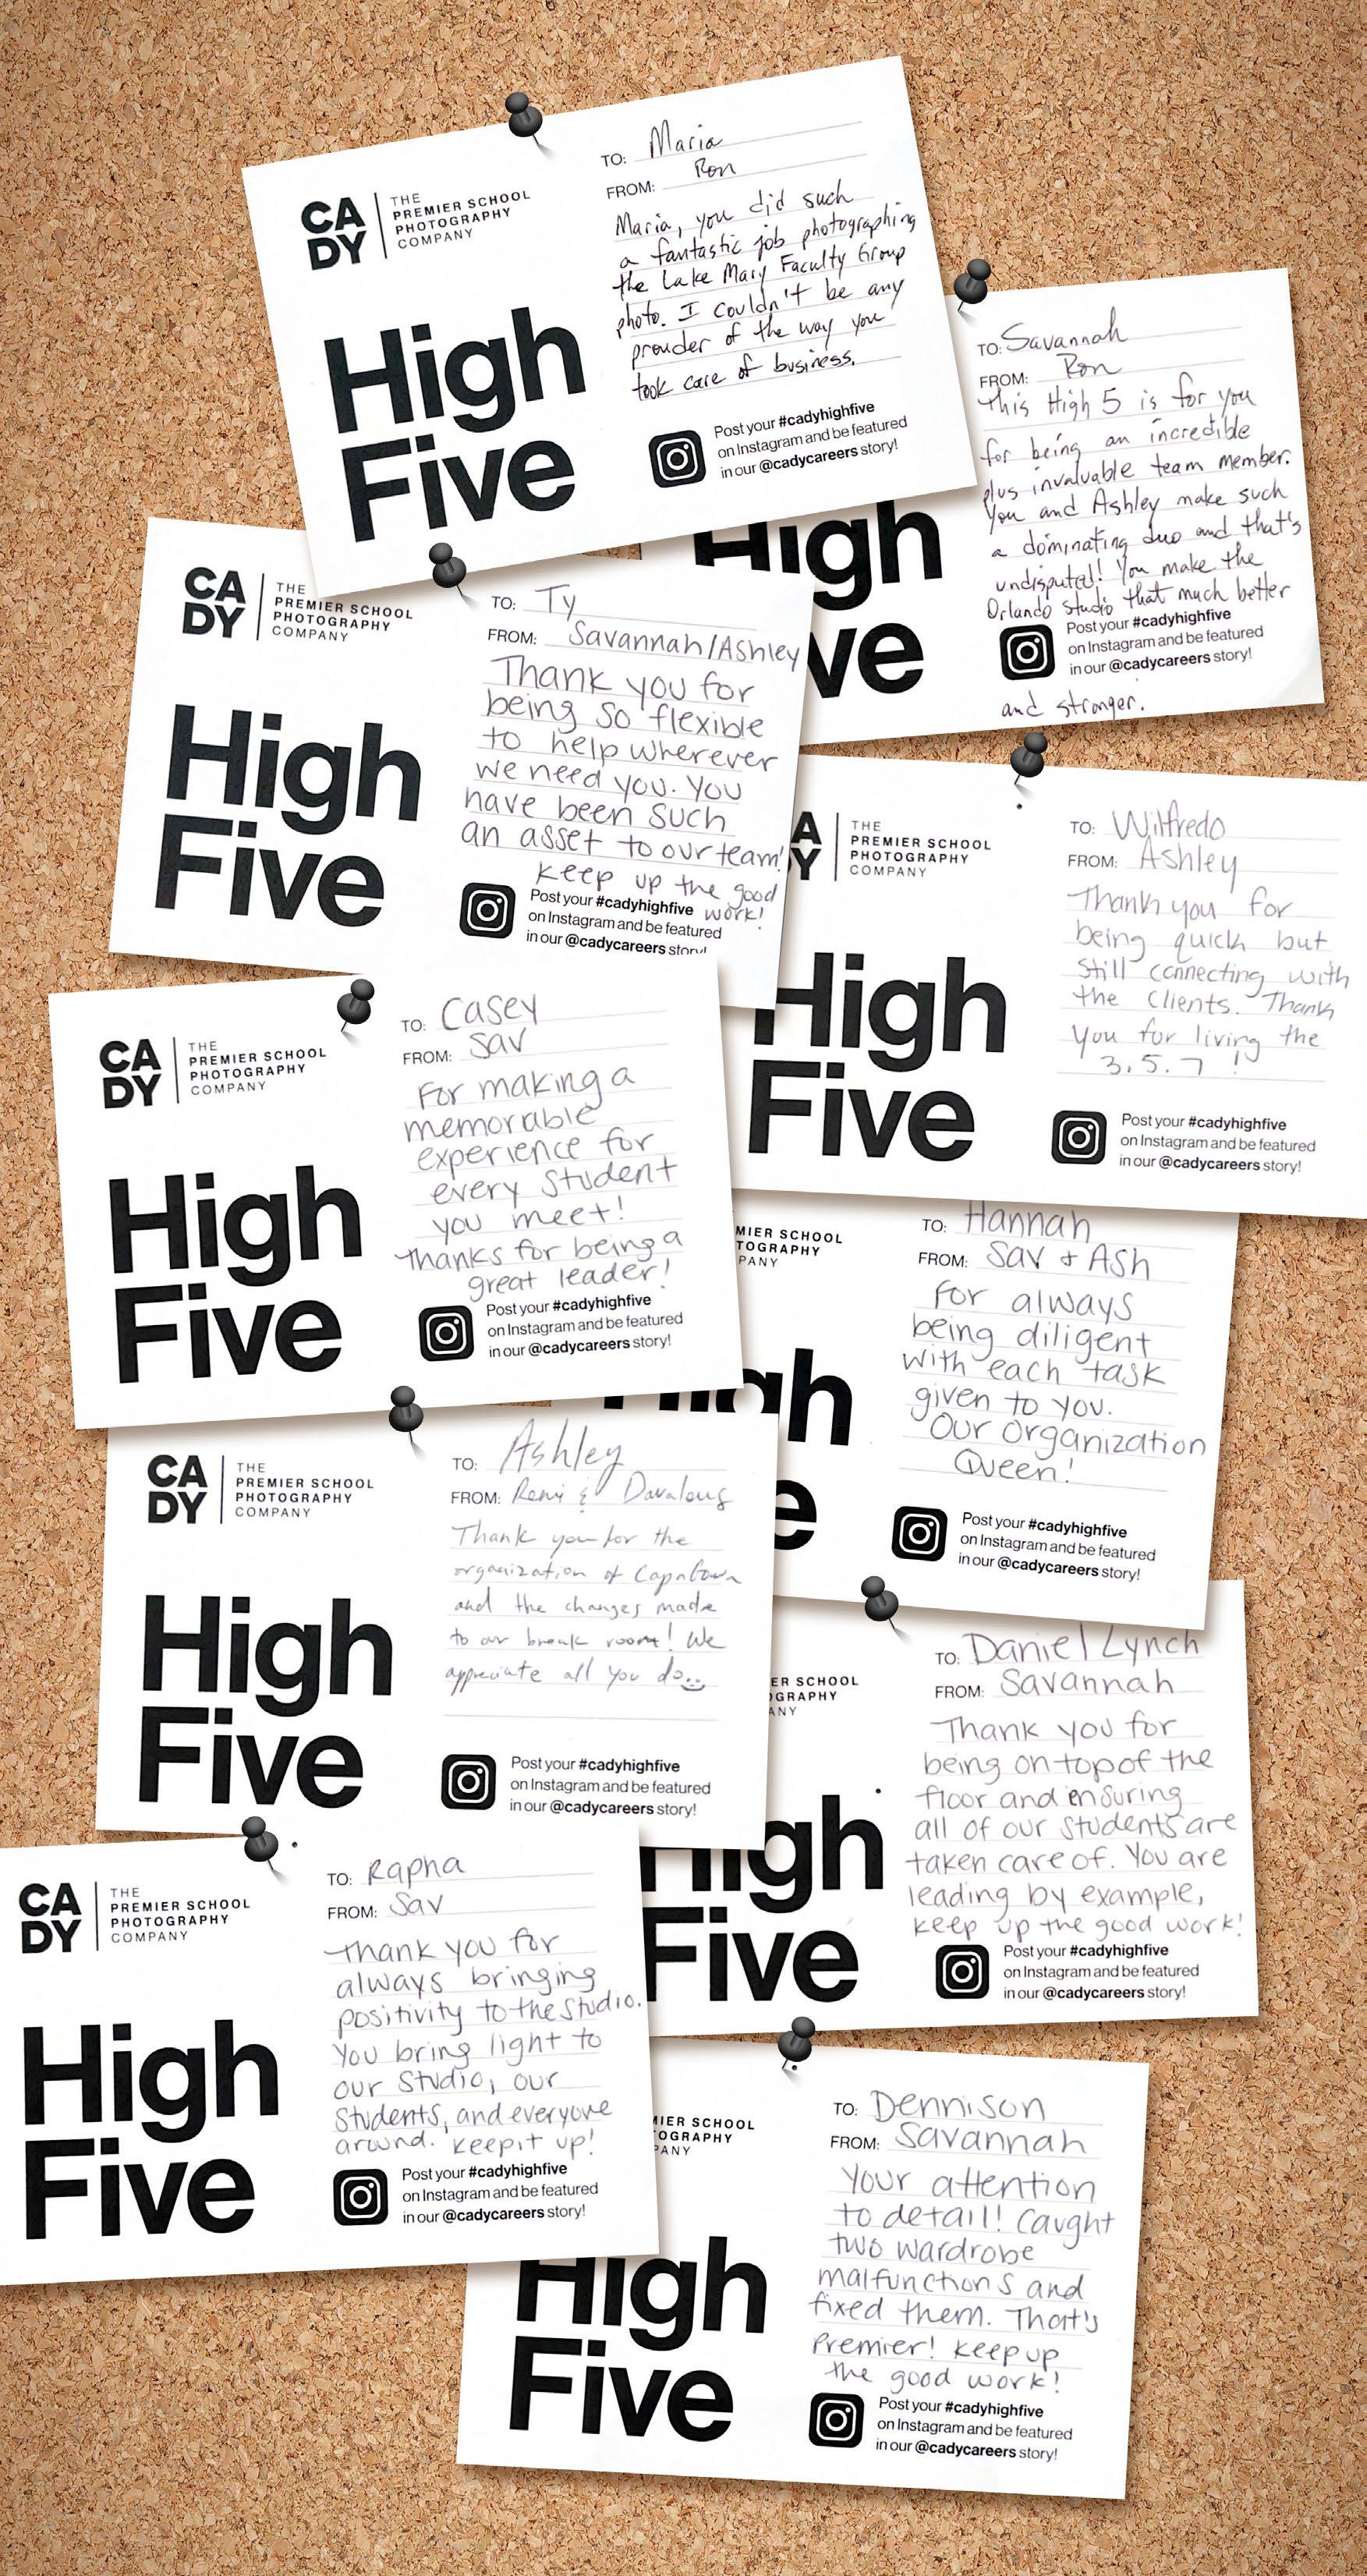 CA
DY
THE
PREMIER SCHOOL
PHOTOGRAPHY
COMPANY
High
Five
TO: Maria
FROM: Ron
Maria, you did such
a fantastic job photographing
the Lake Mary Faculty Group
photo. I couldn't be any
prouder of the way you
took care of business.
Post your #cadyhighfive
on Instagram and be featured
in our @cadycareers story!
High
ve
TO: Savannah
FROM: Ron
This High 5 is for you
for being an incredible
plus invaluable team member.
You and Ashley make such
a dominating duo and that's
undisputed! You make the
Orlando studio that much better
Post your #cadyhighfive
on Instagram and be featured
in our @cadycareers story!
and stronger.
CA
DY
THE
PREMIER SCHOOL
PHOTOGRAPHY
COMPANY
High
Five
TO: Ty
FROM: Savannah/Ashley
Thank you for
being so flexible
to help wherever
we need you. You
have been such
an asset to our team!
Keep up the good
work!
Post your #cadyhighfive
on Instagram and be featured
in our @cadycareers story!
A
Y
THE
PREMIER SCHOOL
PHOTOGRAPHY
COMPANY
High
Five
TO: Wilfredo
FROM: Ashley
Thank you for
being quick but
still connecting with
the clients. Thank
you for living the
3.5.7!
Post your #cadyhighfive
on Instagram and be featured
in our @cadycareers story!
CA
DY
THE
PREMIER SCHOOL
PHOTOGRAPHY
COMPANY
High
Five
TO: Casey
FROM: Sav
For making a
memorable
experience for
every student
you meet!
Thanks for being a
great leader!
Post your #cadyhighfive
on Instagram and be featured
in our @cadycareers story!
MIER SCHOOL
TOGRAPHY
PANY
gh
e
TO: Hannah
FROM: Sav & Ash
For always
being diligent
with each task
given to you.
Our Organization
Queen!
Post your #cadyhighfive
on Instagram and be featured
in our @cadycareers story!
CA
DY
THE
PREMIER SCHOOL
PHOTOGRAPHY
COMPANY
High
Five
TO: Ashley
FROM: Remi & Davalous
Thank you for the
organization of
and the changes made
to our break room! We
appreciate all you do
Post your #cadyhighfive
on Instagram and be featured
in our @cadycareers story!
ER SCHOOL
OGRAPHY
ANY
High
Five
TO: Daniel Lynch
FROM: Savannah
Thank you for
being on top of the
floor and ensuring
all of our students are
taken care of. You are
leading by example,
keep up the good work!
Post your #cadyhighfive
on Instagram and be featured
in our @cadycareers story!
CA
DY
THE
PREMIER SCHOOL
PHOTOGRAPHY
COMPANY
High
Five
TO: Rapha
FROM: Sav
Thank you for
always bringing
positivity to the studio.
You bring light to
our studio, our
students, and everyone
around. Keep it up!
Post your #cadyhighfive
on Instagram and be featured
in our @cadycareers story!
MIER SCHOOL
OGRAPHY
PANY
High
Five
TO: Dennison
FROM: Savannah
Your attention
to detail! Caught
two wardrobe
malfunctions and
fixed them. That's
Premier! Keep up
the good work!
Post your #cadyhighfive
on Instagram and be featured
in our @cadycareers story!